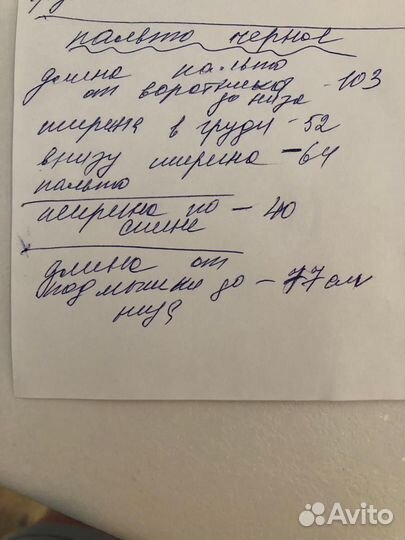 пальто черное
длина пальто
от воротника
до низа - 103
ширина в груди - 52
внизу ширина - 64
пальто
ширина по - 40
спине
длина от
подмышки до - 77 см
низа
Avito